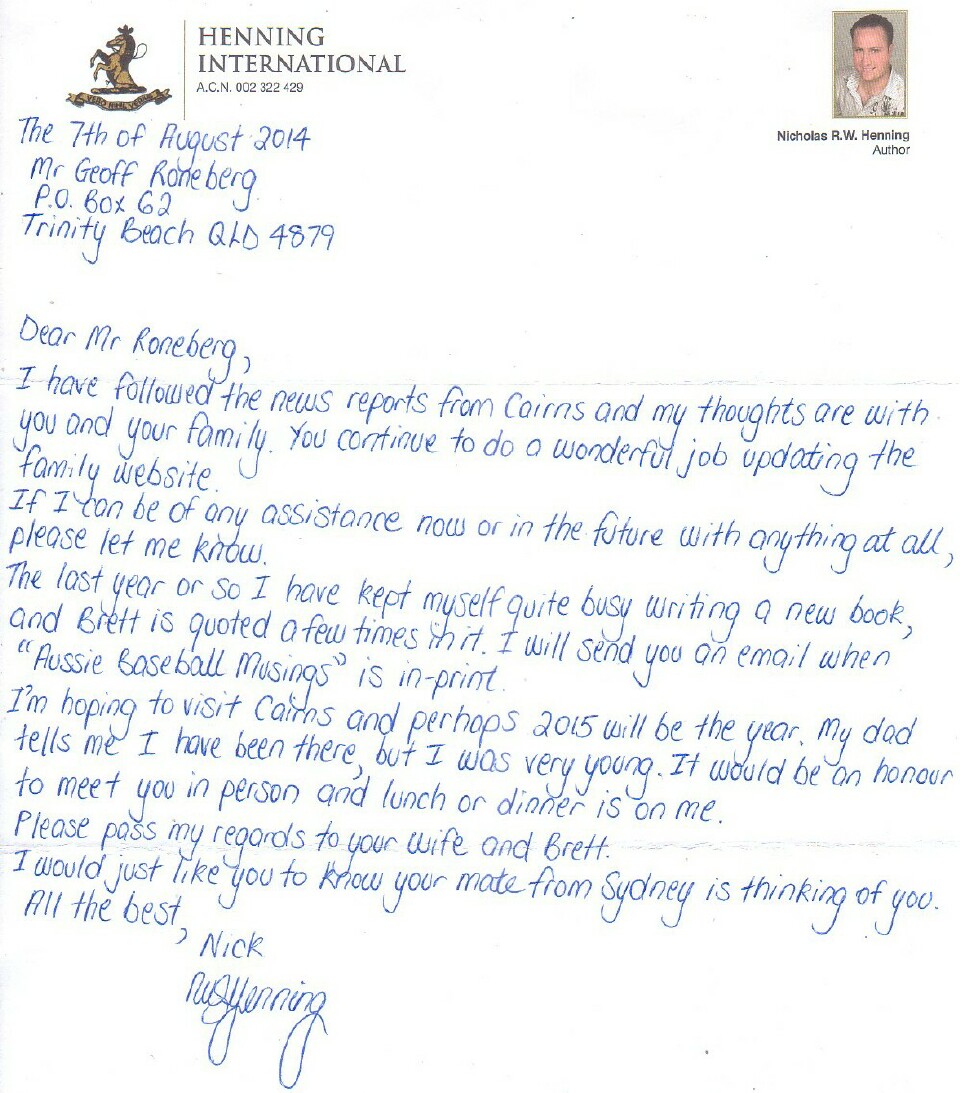 HENNING
INTERNATIONAL
A.C.N. 002 322 429
Nicholas R.W. Henning
Author
The 7th of August 2014
Mr Geoff Roneberg
P.O. Box 62
Trinity Beach QLD 4879
Dear Mr Roneberg,
I have followed the news reports from Cairns and my thoughts are with
you and your family. You continue to do a wonderful job updating the
family website.
If I can be of any assistance now or in the future with anything at all,
please let me know.
The last year or so I have kept myself quite busy writing a new book,
and Brett is quoted a few times in it. I will send you an email when
"Aussie Baseball Musings" is in-print.
I'm hoping to visit Cairns and perhaps 2015 will be the year. My dad
tells me I have been there, but I was very young. It would be an honour
to meet you in person and lunch or dinner is on me.
Please pass my regards to your wife and Brett.
I would just like you to know your mate from Sydney is thinking of you.
All the best,
Nick